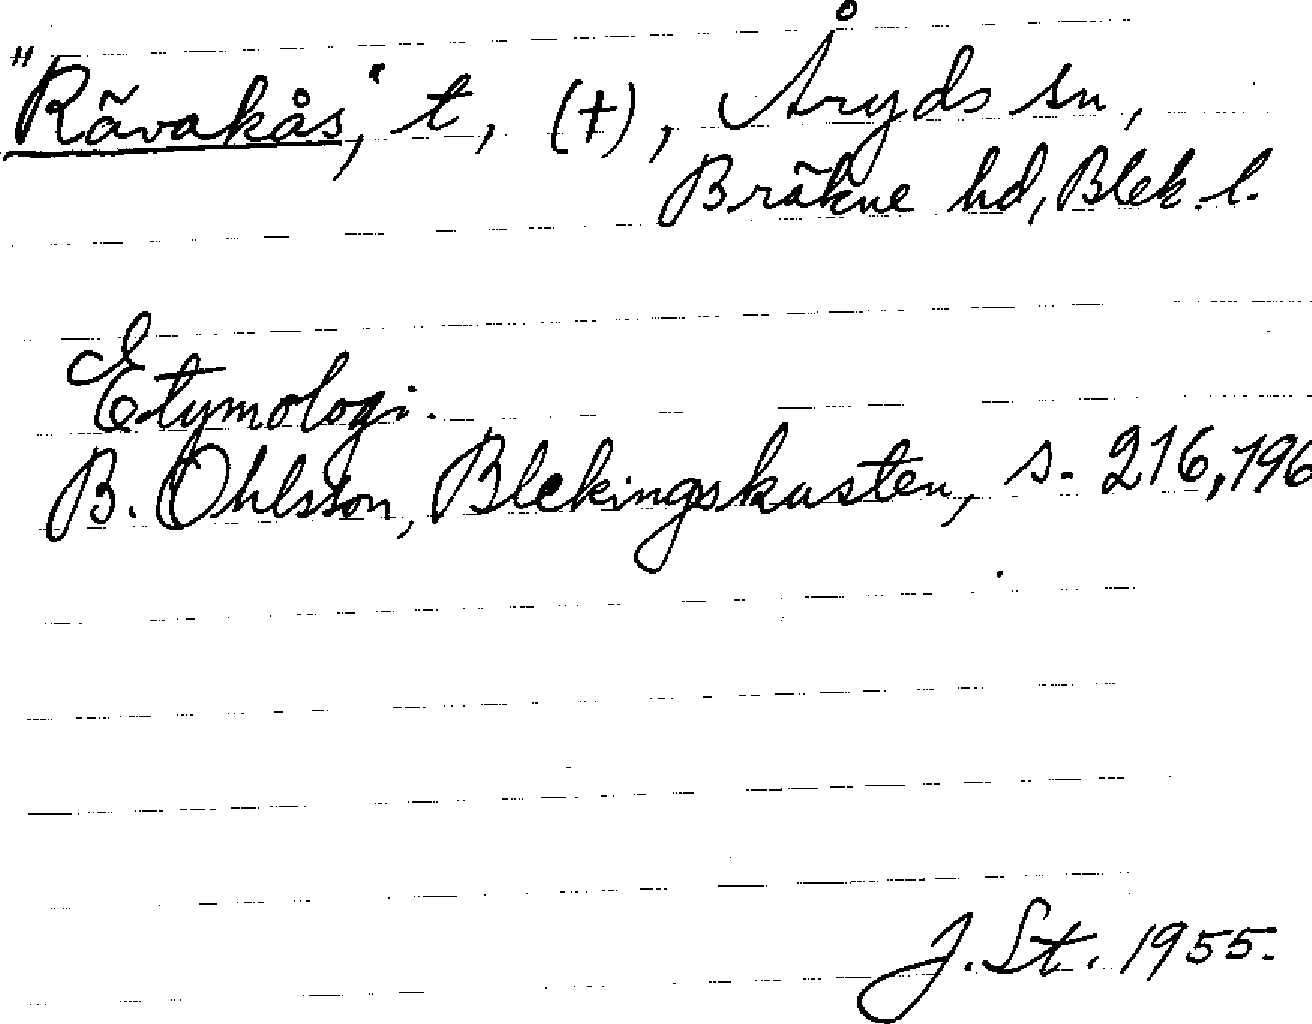 "Rävakås", t, (†), Åryds sn,
Bräkne hd, Blek. l.
Etymologi.
B. Ohlsson, Blekingskusten, s. 216, 196
J. St. 1955.